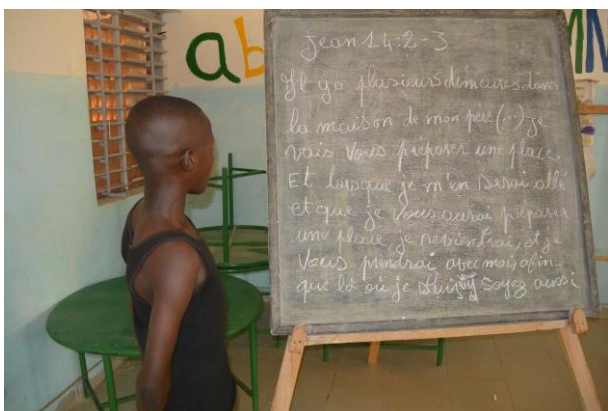 ab
MN
Jean 14:2-3
Il y a plusieurs demeures dans
la maison de mon père (...) je
vais vous préparer une place.
Et lorsque je m'en serai allé
et que je vous aurai préparer
une place je reviendrai, et je
vous prendrai avec moi, afin
que là où je suis, vous soyez aussi